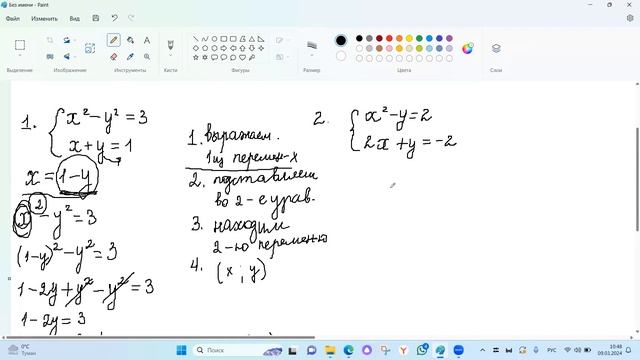 Без имени - Paint
Файл Изменить Вид
Выделение Изображение Инструменты Кисти Фигуры Цвета Слои
1. { x² - y² = 3
x + y = 1
x = 1 - y
x² - y² = 3
(1-y)² - y² = 3
1 - 2y + y² - y² = 3
1 - 2y = 3
1. выражаем
1 из перемен-х
2. подставляем
во 2-е урав.
3. находим
2-ю переменю
4. (x ; y)
2. { x² - y = 2
2x + y = -2
0°C
Туман
Поиск
РУС
10:48
09.01.2024